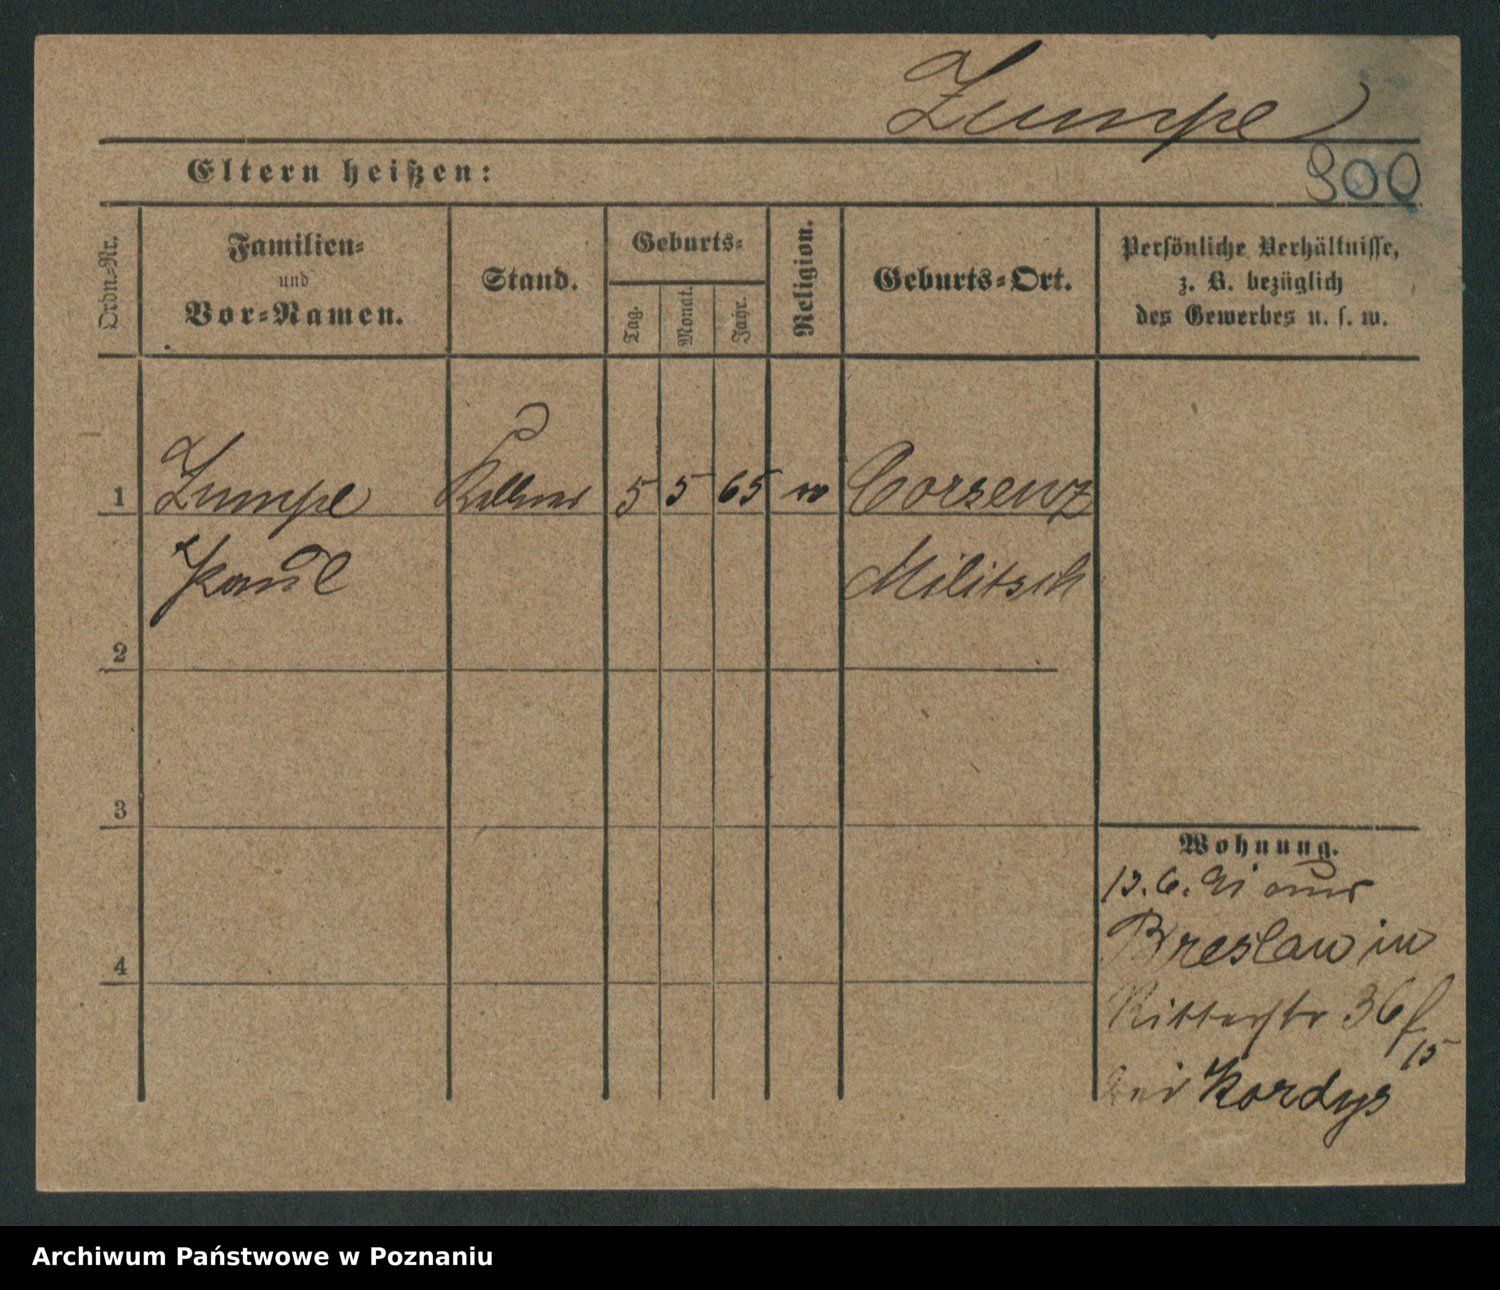 Zumpe
900
Eltern heißen:
Ordn.-Nr.
Familien-
und
Vor-Namen.
Stand.
Geburts-
Tag.
Monat.
Jahr.
Religion.
Geburts-Ort.
Persönliche Verhältnisse,
z. B. bezüglich
des Gewerbes u. s. w.
1 Zumpe Kellner 5 5 65 Corsenz
Paul Militsch
2
3
4
Wohnung.
aus
Breslau in
Ritterstr 36 f
15
bei Kordys
Archiwum Państwowe w Poznaniu